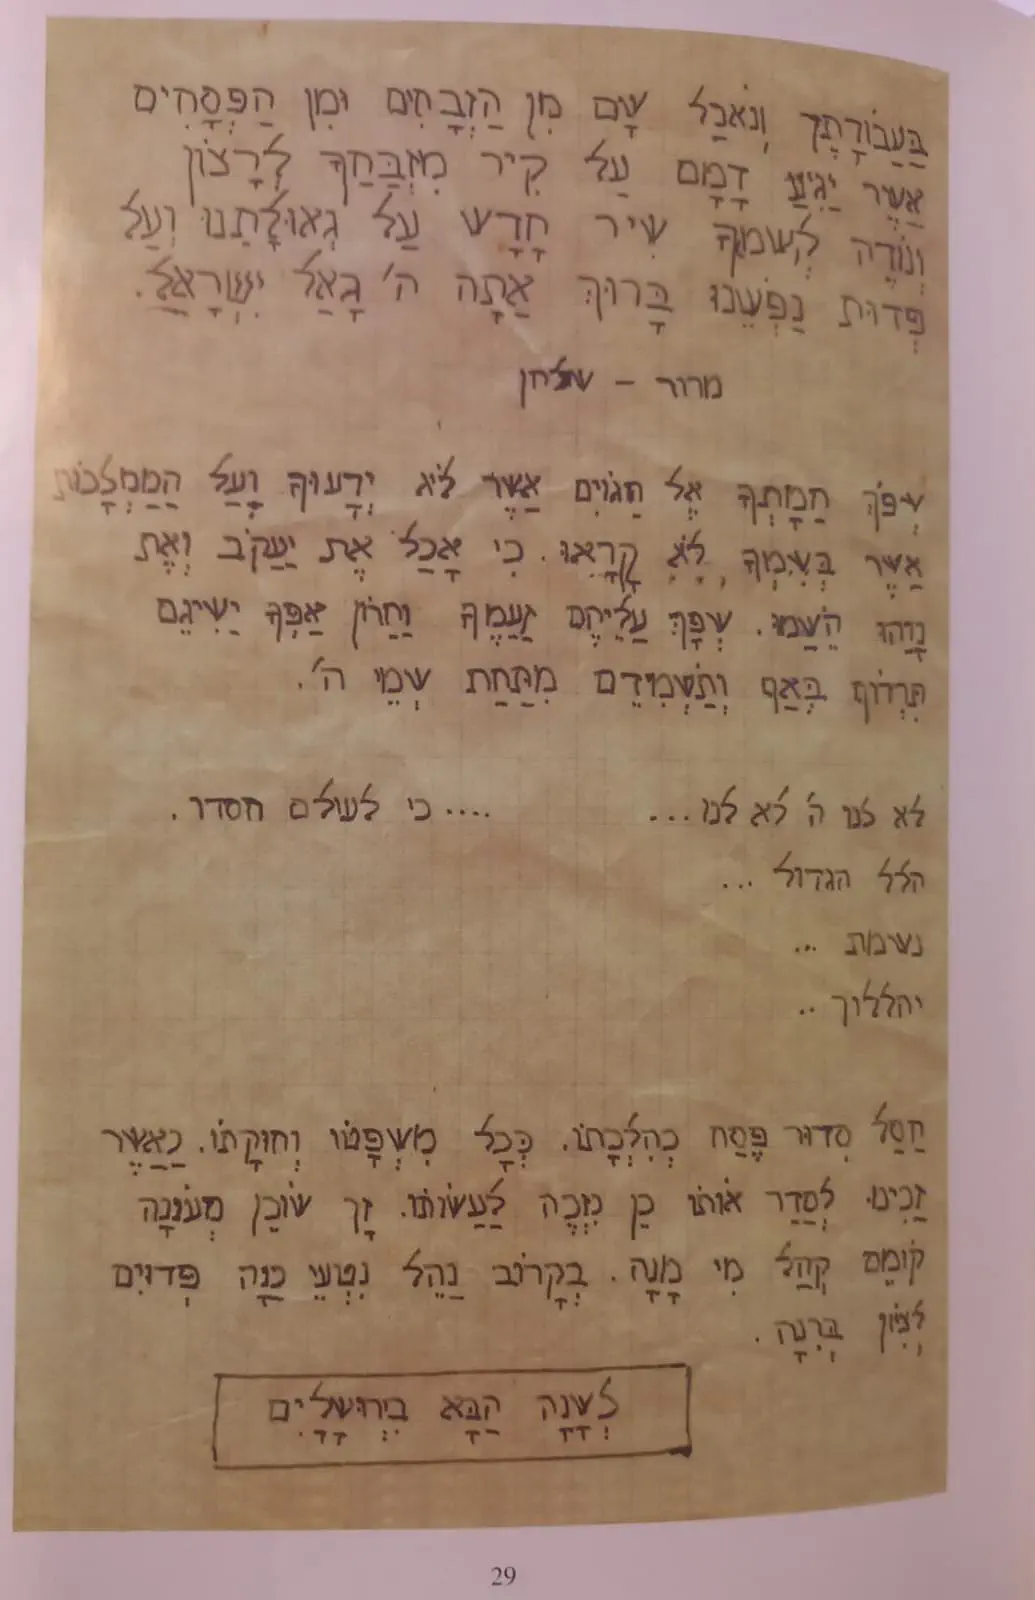 בַּעֲבוֹדָתֶךָ וְנֹאכַל שָׁם מִן הַזְבָחִים וּמִן הַפְּסָחִים
אֲשֶׁר יַגִיעַ דָמָם עַל קִיר מִזְבַּחֲךָ לְרָצוֹן
וְנוֹדֶה לְשִׁמְךָ שִׁיר חָדָשׁ עַל גְאוּלָתֵנוּ וְעַל
פְּדוּת נַפְשֵׁנוּ בָּרוּךְ אַתָּה ה' גָאַל יִשְׂרָאֵל.
מרור – שלחן
שְׁפֹךְ חֲמָתְךָ אֶל הַגוֹיִם אֲשֶׁר לֹא יְדָעוּךָ וְעַל הַמַמְלָכוֹת
אֲשֶׁר בְּשִׁמְךָ לֹא קָרָאוּ. כִּי אָכַל אֶת יַעֲקֹב וְאֶת
נָוֵהוּ הֵשַׁמוּ. שְׁפָךְ עֲלֵיהֶם זַעֲמֶךָ וַחֲרוֹן אַפְּךָ יַשִׂיגֵם
תִּרְדוֹף בְּאַף וְתַשְׁמִידֵם מִתַּחַת שְׁמֵי ה'.
לא לנו ה' לא לנו... ....כי לעולם חסדו.
הלל הגדול ...
נשמת ...
יהללוך ..
חֲסַל סִדוּר פֶּסַח כְּהִלְכָתוֹ. כְּכָל מִשְׁפָּטוֹ וְחוּקָתוֹ. כַּאֲשֶׁר
זָכִינוּ לְסַדֵר אוֹתוֹ כֵּן נִזְכֶּה לַעֲשׂוֹתוֹ. זָךְ שׁוֹכֵן מְעוֹנָה
קוֹמֵם קְהַל מִי מָנָה. בְּקָרוֹב נַהֵל נִטְעֵי כַנָה פְּדוּיִם
לְצִיוֹן בְּרִנָה.
לְשָׁנָה הַבָּא בִּירוּשָׁלָיִם
29